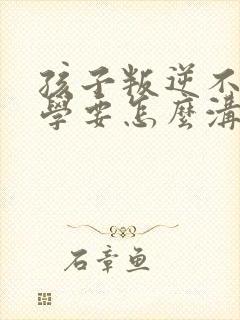 孩子叛逆不
學要怎麼溝
石章鱼